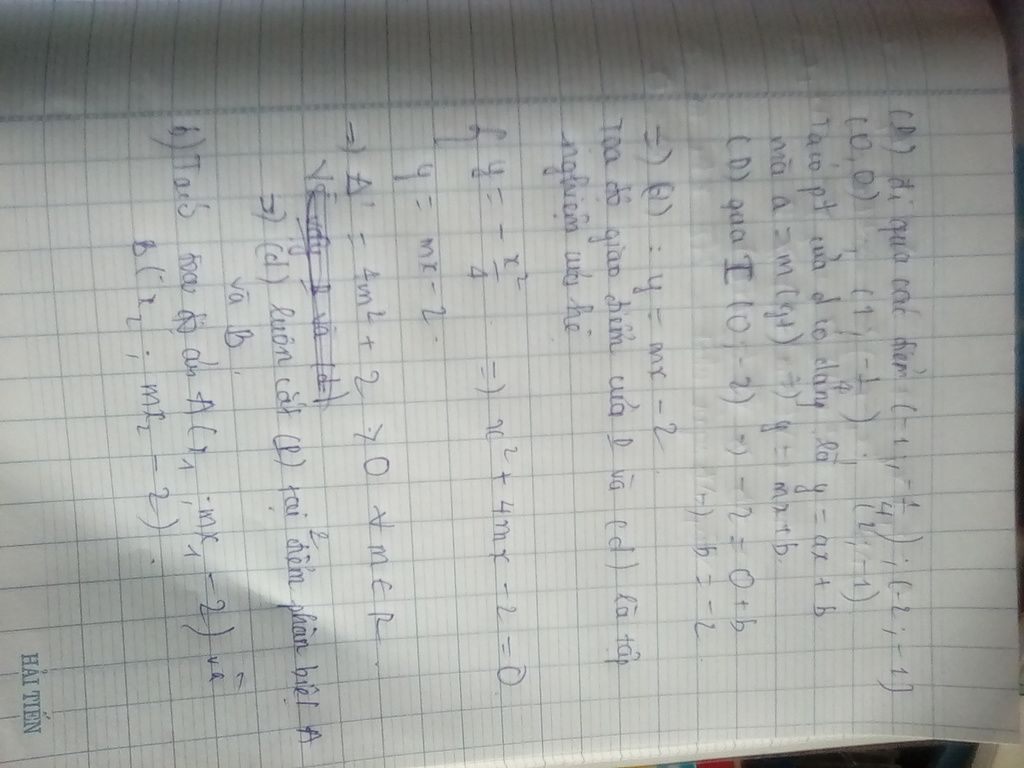 (P) đi qua các điểm (-1; -1/4); (-2; -1)
(0, 0); (1; -1/4); (2; -1)
Ta có pt của d có dạng là y = ax + b
mà a = m (gt) => y = mx + b
(D) qua I (0; -2) => -2 = 0 + b
(=) b = -2
=> (d): y = mx - 2
Toạ độ giao điểm của P và (d) là tập
nghiệm của hệ
{ y = - x²/4 => x² + 4mx - 2 = 0
y = mx - 2
=> Δ' = 4m² + 2 > 0 ∀ m ∈ R
Vậy P và (d)
=> (d) luôn cắt (P) tại 2 điểm phân biệt A
và B
b) Ta có toạ độ A(x₁; mx₁ - 2) và
B(x₂; mx₂ - 2)
HẢI TIẾN